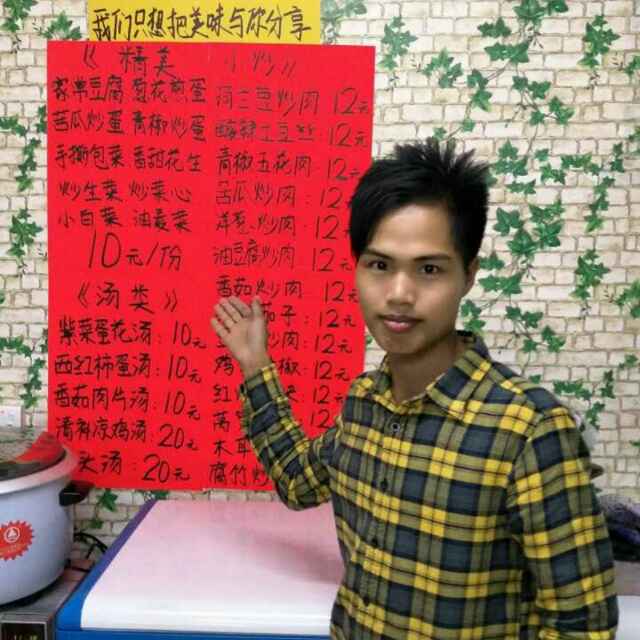 我们只想把美味与你分享
《 精美 小炒 》
家常豆腐 葱花煎蛋
苦瓜炒蛋 青椒炒蛋
手撕包菜 香甜花生
炒生菜 炒菜心
小白菜 油麦菜
10元/份
《 汤类 》
紫菜蛋花汤:10元
西红柿蛋汤:10元
番茄肉片汤:10元
清补凉鸡汤:20元
头汤:20元
荷兰豆炒肉 12元
酸辣土豆丝:12元
青椒五花肉:12元
苦瓜炒肉:12元
洋葱炒肉:12元
油豆腐炒肉:12元
番茄炒肉 12元
茄子:12元
炒肉:12元
鸡 椒:12元
红 12元
莴 12
木耳
腐竹炒